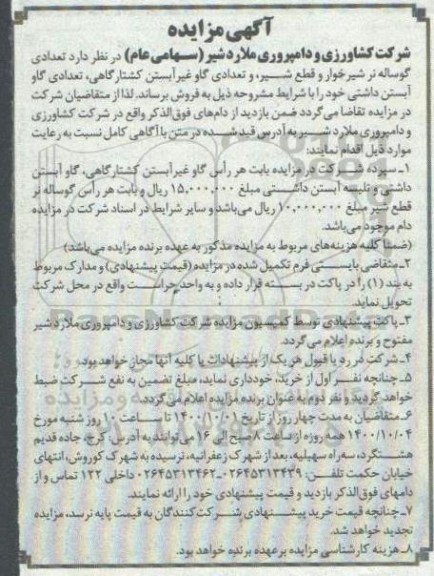 آگهی مزایده
شرکت کشاورزی و دامپروری ملارد شیر (سهامی عام) در نظر دارد تعدادی
گوساله نر شیرخوار و قطع شیر، و تعدادی گاو غیر آبستن کشتارگاهی، تعدادی گاو
آبستن داشتی خود را با شرایط مشروحه ذیل به فروش برساند. لذا از متقاضیان شرکت
در مزایده تقاضا می‌گردد ضمن بازدید از دام‌های فوق‌الذکر واقع در شرکت کشاورزی
و دامپروری ملارد شیر به آدرس قید شده در متن با آگاهی کامل نسبت به رعایت
موارد ذیل اقدام نمایند:
۱ـ سپرده شرکت در مزایده بابت هر رأس گاو غیر آبستن کشتارگاهی، گاو آبستن
داشتی و تلیسه آبستن داشتی مبلغ ۱۵,۰۰۰,۰۰۰ ریال و بابت هر رأس گوساله نر
قطع شیر مبلغ ۱۰,۰۰۰,۰۰۰ ریال می‌باشد و سایر شرایط در اسناد شرکت در مزایده
دام موجود می‌باشد.
(ضمناً کلیه هزینه‌های مربوط به مزایده مذکور به عهده برنده مزایده می‌باشد)
۲ـ متقاضی بایستی فرم تکمیل شده در مزایده (قیمت پیشنهادی) و مدارک مربوط
به بند (۱) را در پاکت در بسته قرار داده و به واحد حراست واقع در محل شرکت
تحویل نماید.
۳ـ پاکت پیشنهادی توسط کمیسیون مزایده شرکت کشاورزی و دامپروری ملارد شیر
مفتوح و برنده اعلام می‌گردد.
۴ـ شرکت در رد یا قبول هر یک از پیشنهادات یا کلیه آنها مجاز خواهد بود.
۵ـ چنانچه نفر اول از خرید، خودداری نماید، مبلغ تضمین به نفع شرکت ضبط
خواهد گردید و نفر دوم به عنوان برنده مزایده اعلام می‌گردد.
۶ـ متقاضیان به مدت چهار روز از تاریخ ۱۴۰۰/۱۰/۰۱ تا ساعت ۱۰ روز شنبه مورخ
۱۴۰۰/۱۰/۰۴ همه روزه از ساعت ۸ صبح الی ۱۶ می‌توانند به آدرس: کرج، جاده قدیم
هشتگرد، سه‌راه سهیلیه، بعد از شهرک زعفرانیه، نرسیده به شهرک کوروش، انتهای
خیابان حکمت تلفن: ۰۲۶۴۵۳۱۳۴۳۹ـ۰۲۶۴۵۳۱۳۴۶۲ داخلی ۱۳۲ تماس و از
دامهای فوق‌الذکر بازدید و قیمت پیشنهادی خود را ارائه نمایند.
۷ـ چنانچه قیمت خرید پیشنهادی شرکت‌کنندگان به قیمت پایه نرسد، مزایده
تجدید خواهد شد.
۸ـ هزینه کارشناسی مزایده بر عهده برنده خواهد بود.
ParsNamadData